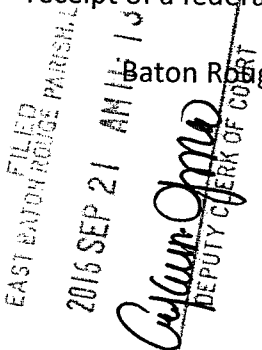 receipt of a federal
Baton Roug
FILED
EAST BATON ROUGE PARISH, L
2016 SEP 21 AM 11: 13
DEPUTY CLERK OF COURT